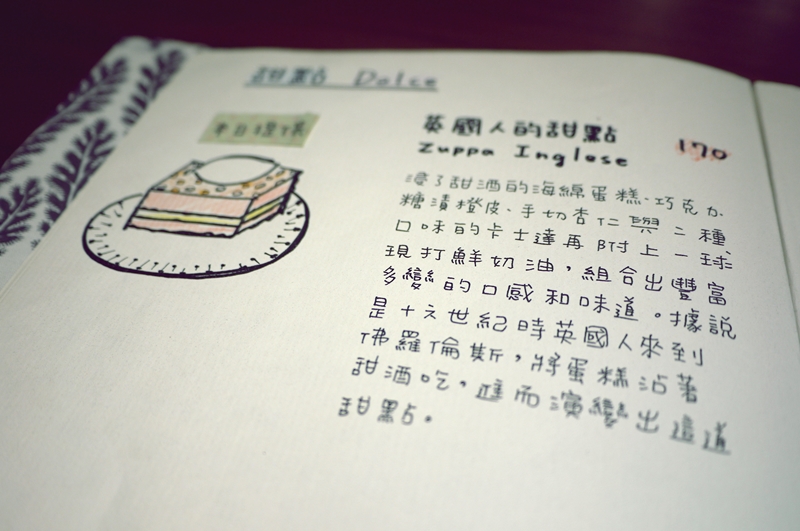 甜點 Dolce
英國人的甜點
170
Zuppa Inglese
浸了甜酒的海綿蛋糕、巧克力、
糖漬橙皮、手切杏仁與二種
口味的卡士達再附上一球
現打鮮奶油，組合出豐富
多變的口感和味道。據說
是十六世紀時英國人來到
佛羅倫斯，將蛋糕沾著
甜酒吃，進而演變出這道
甜點。